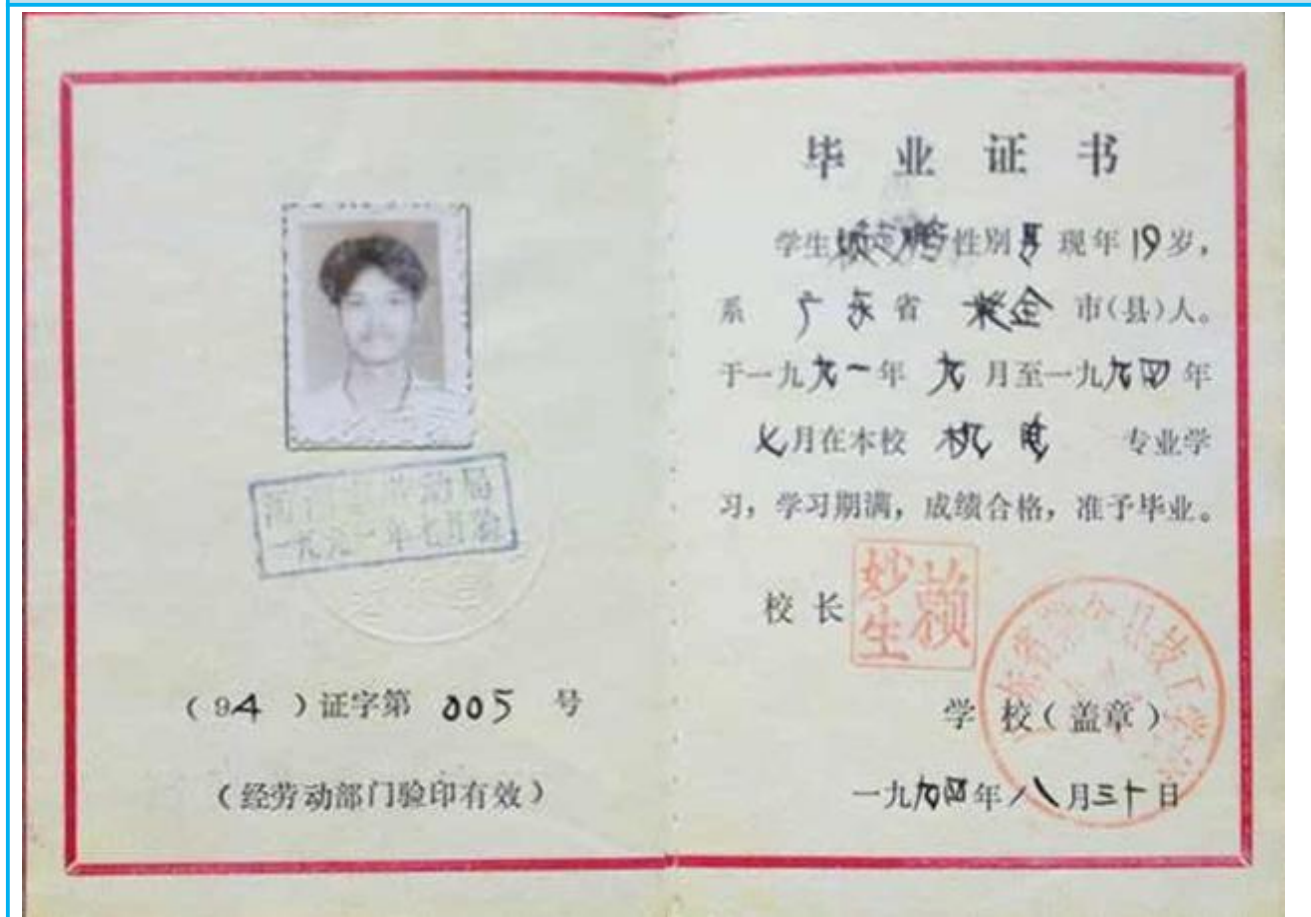 (94)证字第 005 号
(经劳动部门验印有效)
毕业证书
学生 性别 男 现年 19 岁,
系 广东 省 紫金 市(县)人。
于一九九一年 九 月至一九九四年
七月在本校 机电 专业学
习,学习期满,成绩合格,准予毕业。
校长
赖妙生
学校(盖章)
一九九四年八月三十日